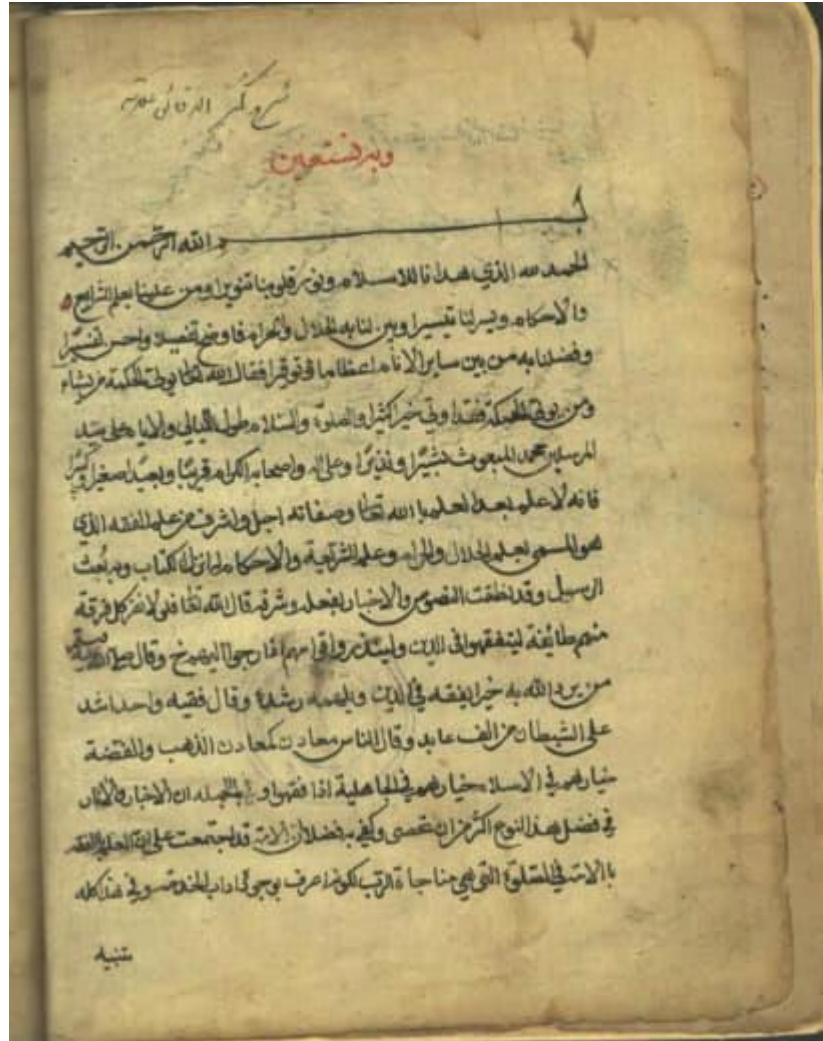 شرح كنز الدقائق
وبه نستعين
بسم الله الرحمن الرحيم
الحمد لله الذي هدانا للاسلام ونور قلوبنا تنويرا ومن علينا بعلم الشرايع
والاحكام ويسر لنا تيسيرا وبين لنا به الحلال والحرام فاوضح تفصيلا واحسن تفسيرا
وفضلنا به من بين ساير الانام اعظاما وتوقيرا فقال الله تعالى يوتى الحكمة من يشاء
ومن يوتى الحكمة فقد اوتي خيرا كثيرا والصلوة والسلام طول الليالي والايام على سيد
المرسلين محمد المبعوث بشيرا ونذيرا وعلى اله واصحابه الكرام قريبا وبعيدا صغيرا وكبيرا
فانه لا علم بعد العلم بالله تعالى وصفاته اجل واشرف من علم الفقه الذي
هو المسمى بعلم الحلال والحرام وعلم الشرايع والاحكام له انزل الكتاب وبه بعث
الرسل وقد نطقت النصوص والاخبار بفضله وشرفه قال الله تعالى فلولا نفر كل فرقة
منهم طايفة ليتفقهوا في الدين ولينذروا قومهم اذا رجعوا اليهم وقال
من يرد الله به خيرا يفقه في الدين ويلهمه رشده وقال فقيه واحد اشد
على الشيطان من الف عابد وقال الناس معادن كمعادن الذهب والفضة
خيارهم في الاسلام خيارهم في الجاهلية اذا فقهوا وبالجملة ان الاخبار والاثار
في فضل هذا النوع اكثر من ان تحصى وكفى به فضلا ان الامة قد اجتمعت على ان العلم
بالامة في الصلوة التي هي مناجاة الرب لكونه اعرف بوجوه اداب الخدمة وفي هذا كله
تنبيه